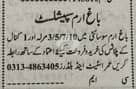 باغ ارم سپیشلسٹ
باغ ارم سوسائٹی میں 3/5/7/10 مرلہ اور 1 کنال
کے پلاٹس کی خرید و فروخت کیلئے اعتماد کے ساتھ رابطہ
کریں۔ عمر اسٹیٹ اینڈ بلڈرز 0313-4863405